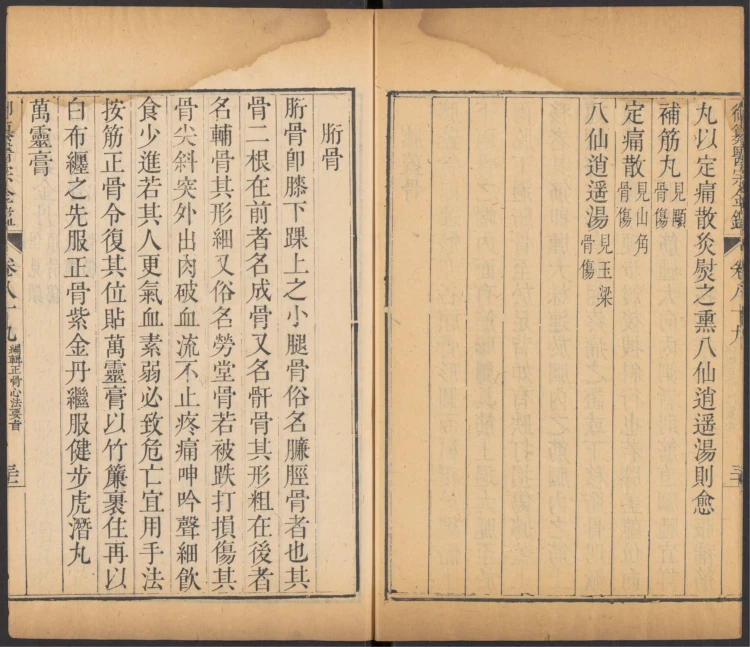 丸以定痛散灸熨之熏八仙逍遥湯則愈
補筋丸見顒骨傷
定痛散見山角骨傷
八仙逍遥湯見玉梁骨傷
胻骨
胻骨卽膝下踝上之小腿骨俗名臁脛骨者也其
骨二根在前者名成骨又名骭骨其形粗在後者
名輔骨其形細又俗名勞堂骨若被跌打損傷其
骨尖斜突外出肉破血流不止疼痛呻吟聲細飲
食少進若其人更氣血素弱必致危亡宜用手法
按筋正骨令復其位貼萬靈膏以竹簾裹住再以
白布纏之先服正骨紫金丹繼服健步虎潛丸
萬靈膏
卷八十九
編輯正骨心法要旨